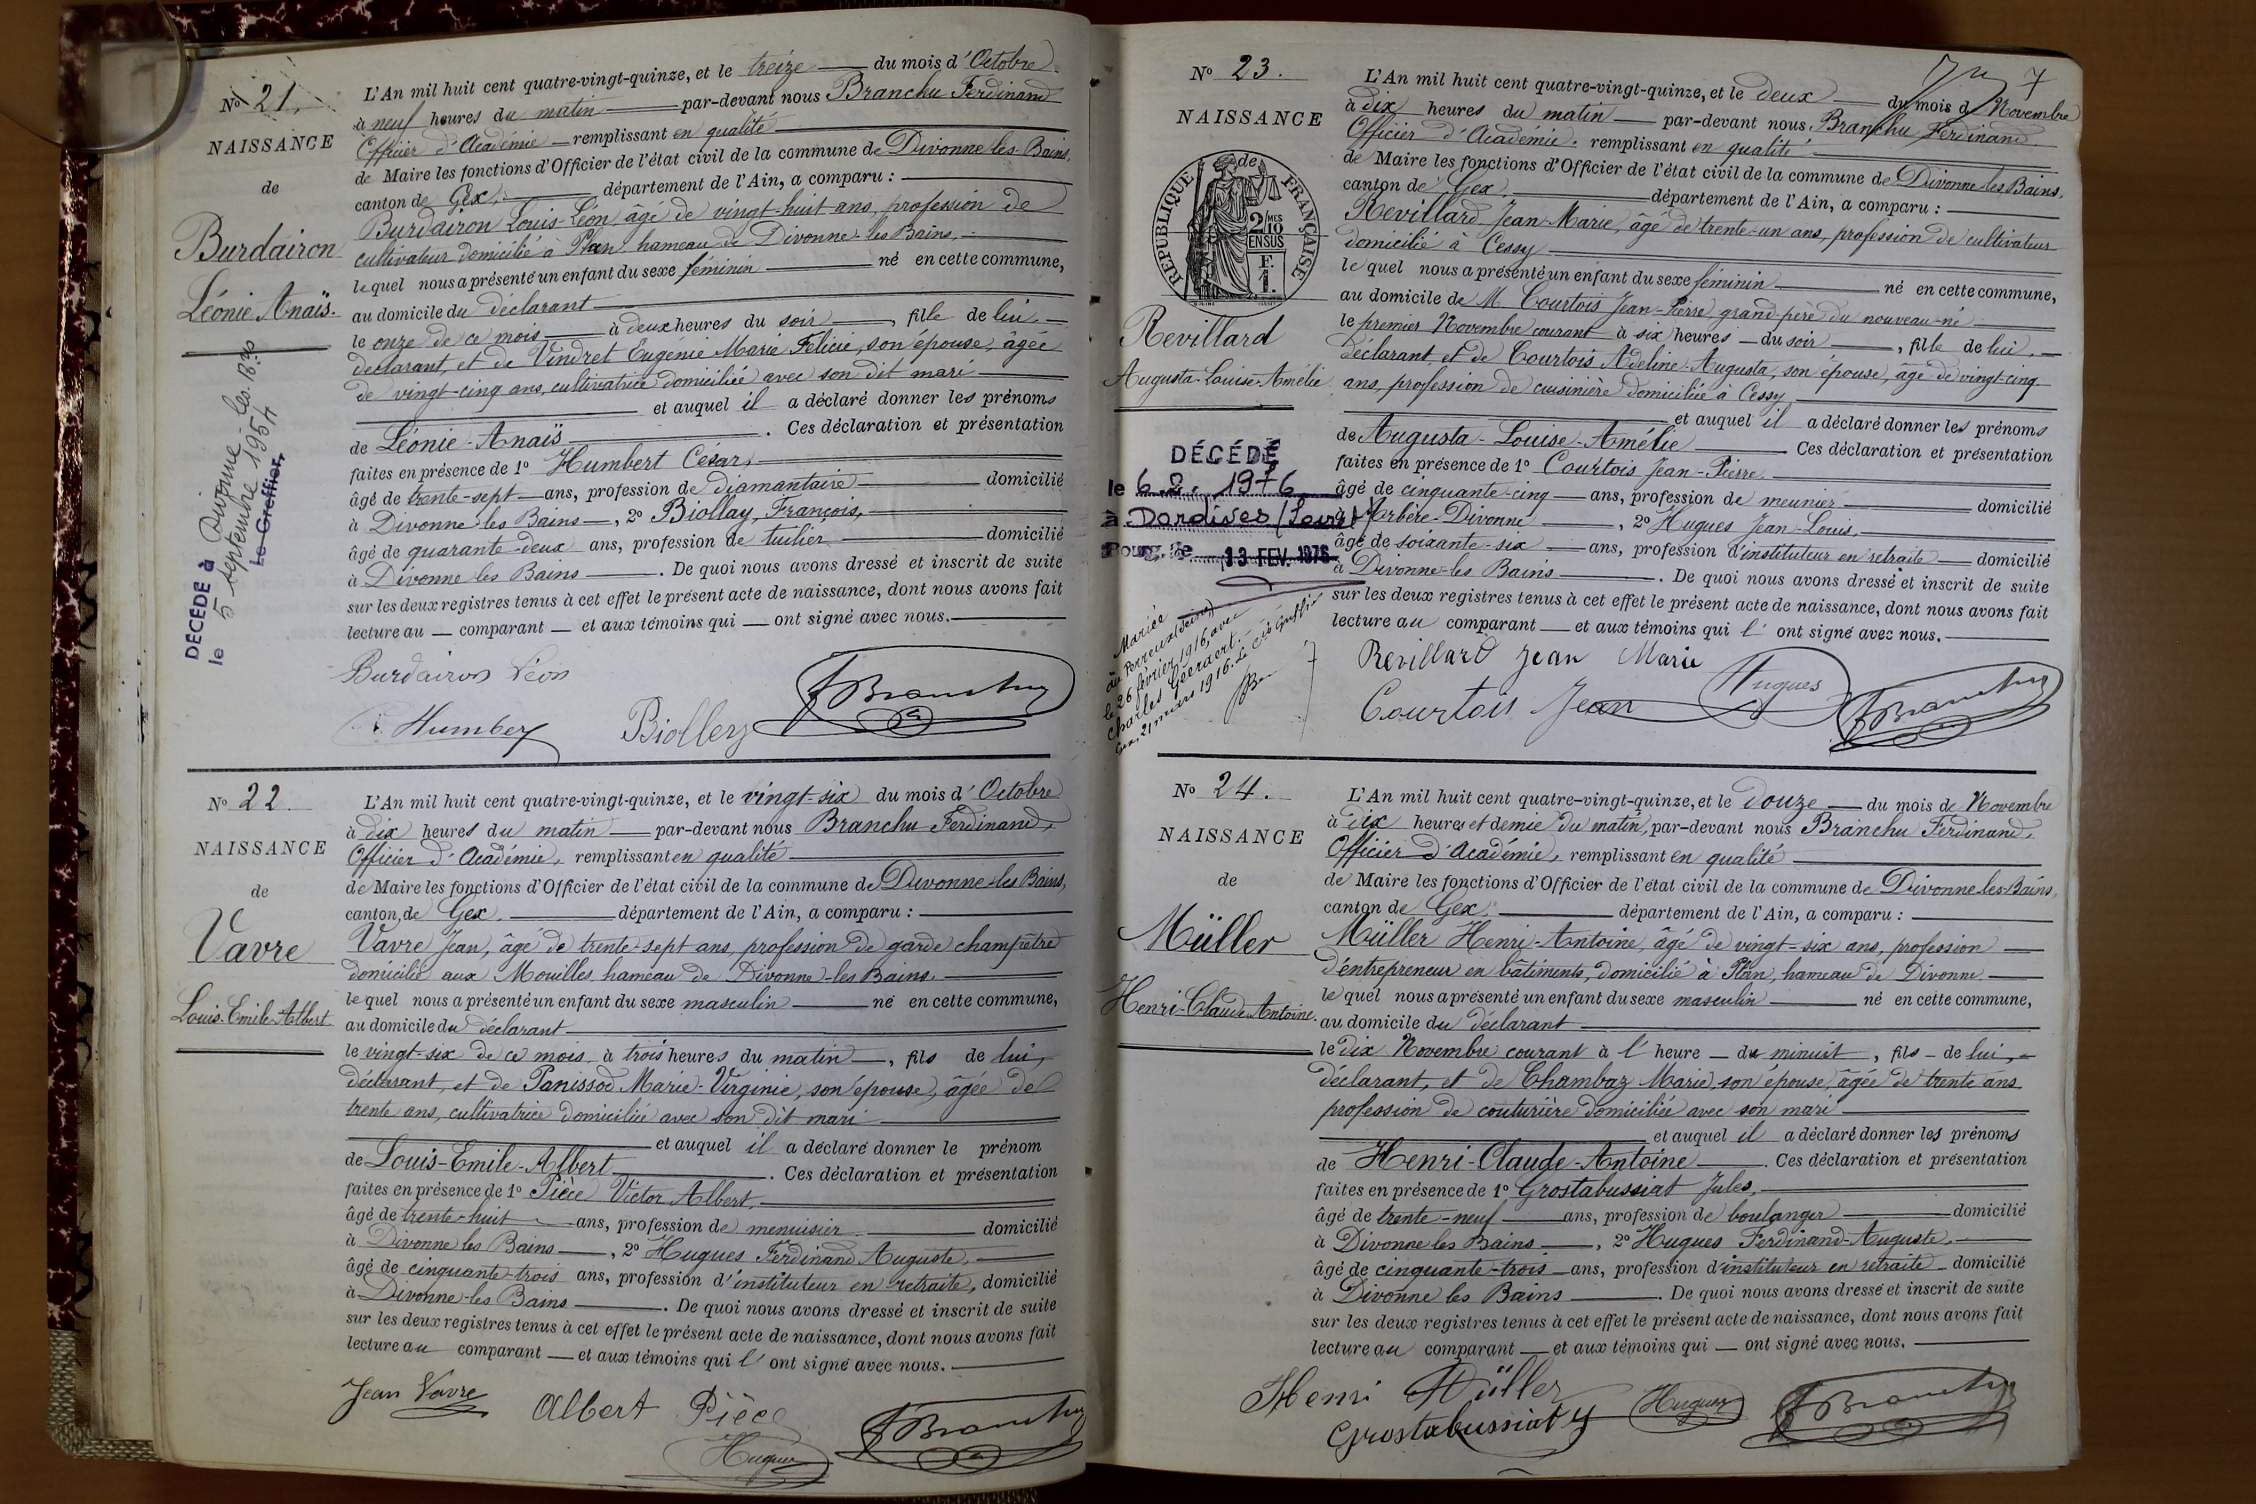 N° 21.
NAISSANCE
de
Burdairon
Léonie Anaïs.
DÉCÉDÉ à Divonne-les-B:ns
le 5 septembre 1954
Le Greffier,
L'An mil huit cent quatre-vingt-quinze, et le treize du mois d'Octobre
à neuf heures du matin par-devant nous Branchu Ferdinand
Officier d'Académie remplissant en qualité
de Maire les fonctions d'Officier de l'état civil de la commune de Divonne-les-Bains,
canton de Gex, département de l'Ain, a comparu :
Burdairon Louis Léon, âgé de vingt-huit ans, profession de
cultivateur domicilié à Plan hameau de Divonne-les Bains,
lequel nous a présenté un enfant du sexe féminin né en cette commune,
au domicile du déclarant
le onze de ce mois à deux heures du soir, fille de lui
déclarant, et de Vindret Eugénie Marie Félicie, son épouse, âgée
de vingt-cinq ans, cultivatrice domiciliée avec son dit mari
et auquel il a déclaré donner les prénoms
de Léonie-Anaïs. Ces déclaration et présentation
faites en présence de 1° Humbert César,
âgé de trente-sept ans, profession de diamantaire domicilié
à Divonne les Bains, 2° Biollay, François,
âgé de quarante-deux ans, profession de tuilier domicilié
à Divonne les Bains. De quoi nous avons dressé et inscrit de suite
sur les deux registres tenus à cet effet le présent acte de naissance, dont nous avons fait
lecture au comparant et aux témoins qui ont signé avec nous.
Burdairon Léon
Humbert Biollay FBranchu
N° 22.
NAISSANCE
de
Vavre
Louis-Emile-Albert
L'An mil huit cent quatre-vingt-quinze, et le vingt-six du mois d'Octobre
à dix heures du matin par-devant nous Branchu Ferdinand,
Officier d'Académie, remplissant en qualité
de Maire les fonctions d'Officier de l'état civil de la commune de Divonne-les Bains,
canton de Gex, département de l'Ain, a comparu :
Vavre Jean, âgé de trente-sept ans, profession de garde champêtre
domicilié aux Mouilles hameau de Divonne-les Bains,
lequel nous a présenté un enfant du sexe masculin né en cette commune,
au domicile du déclarant
le vingt-six de ce mois à trois heures du matin, fils de lui,
déclarant, et de Panissod Marie-Virginie, son épouse, âgée de
trente ans, cultivatrice domiciliée avec son dit mari
et auquel il a déclaré donner le prénom
de Louis-Emile-Albert. Ces déclaration et présentation
faites en présence de 1° Pièce Victor Albert,
âgé de trente-huit ans, profession de menuisier domicilié
à Divonne les Bains, 2° Hugues Ferdinand Auguste,
âgé de cinquante-trois ans, profession d'instituteur en retraite, domicilié
à Divonne-les Bains. De quoi nous avons dressé et inscrit de suite
sur les deux registres tenus à cet effet le présent acte de naissance, dont nous avons fait
lecture au comparant et aux témoins qui l'ont signé avec nous.
Jean Vavre Albert Pièce FBranchu
Hugues
7
N° 23.
NAISSANCE
de
RÉPUBLIQUE FRANÇAISE
2/10 MES
EN SUS
F.
1.
Revillard
Augusta-Louise-Amélie
DÉCÉDÉ
le 6.2.1976
à Dordives (Loiret)
Bourg, le 13 FEV. 1976
Mariée
au Perreux (Seine)
le 26 février 1916, avec
Charles Geeraert.
Gex, 21 mars 1916. Le Cis Greffier
L'An mil huit cent quatre-vingt-quinze, et le deux du mois d Novembre
à dix heures du matin par-devant nous Branchu Ferdinand
Officier d'Académie. remplissant en qualité
de Maire les fonctions d'Officier de l'état civil de la commune de Divonne-les Bains,
canton de Gex, département de l'Ain, a comparu :
Revillard Jean-Marie, âgé de trente-un ans, profession de cultivateur
domicilié à Cessy
lequel nous a présenté un enfant du sexe féminin né en cette commune,
au domicile de M Courtois Jean-Pierre grand-père du nouveau-né
le premier Novembre courant à six heures du soir, fille de lui,
déclarant, et de Courtois Adeline-Augusta, son épouse, âgé de vingt-cinq
ans, profession de cuisinière domiciliée à Cessy
et auquel il a déclaré donner les prénoms
de Augusta-Louise-Amélie Ces déclaration et présentation
faites en présence de 1° Courtois Jean-Pierre
âgé de cinquante-cinq ans, profession de meunier domicilié
à Arbère-Divonne, 2° Hugues Jean-Louis,
âgé de soixante-six ans, profession d'instituteur en retraite domicilié
à Divonne-les Bains. De quoi nous avons dressé et inscrit de suite
sur les deux registres tenus à cet effet le présent acte de naissance, dont nous avons fait
lecture au comparant et aux témoins qui l'ont signé avec nous.
Revillard Jean Marie Hugues
Courtois Jean FBranchu
N° 24.
NAISSANCE
de
Müller
Henri-Claude-Antoine.
L'An mil huit cent quatre-vingt-quinze, et le douze du mois de Novembre
à dix heures et demie du matin, par-devant nous Branchu Ferdinand,
Officier d'Académie, remplissant en qualité
de Maire les fonctions d'Officier de l'état civil de la commune de Divonne-les-Bains,
canton de Gex, département de l'Ain, a comparu :
Müller Henri-Antoine, âgé de vingt-six ans, profession
d'entrepreneur en bâtiments, domicilié à Plan, hameau de Divonne
lequel nous a présenté un enfant du sexe masculin né en cette commune,
au domicile du déclarant
le dix Novembre courant à l'heure de minuit, fils de lui,
déclarant, et de Chambaz Marie, son épouse, âgée de trente ans
profession de couturière domiciliée avec son mari
et auquel il a déclaré donner les prénoms
de Henri-Claude-Antoine. Ces déclaration et présentation
faites en présence de 1° Grostabussiat Jules,
âgé de trente-neuf ans, profession de boulanger domicilié
à Divonne les Bains, 2° Hugues Ferdinand-Auguste,
âgé de cinquante-trois ans, profession d'instituteur en retraite domicilié
à Divonne les Bains. De quoi nous avons dressé et inscrit de suite
sur les deux registres tenus à cet effet le présent acte de naissance, dont nous avons fait
lecture au comparant et aux témoins qui ont signé avec nous.
Henri Müller Hugues FBranchu
Grostabussiat J